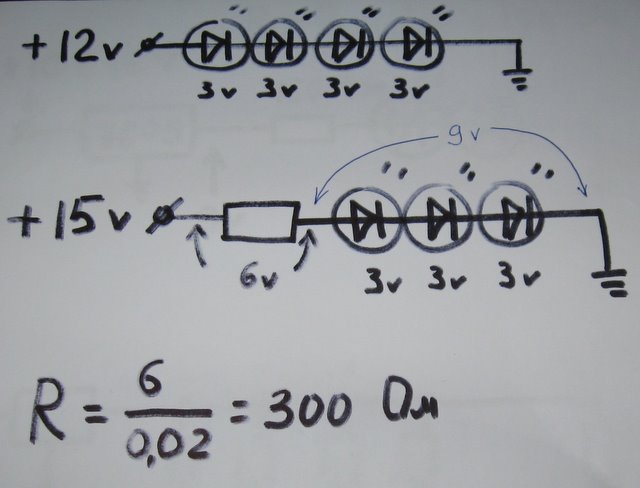 +12v
3v 3v 3v 3v
9v
+15v
6v 3v 3v 3v
R = 6/0,02 = 300 Ом